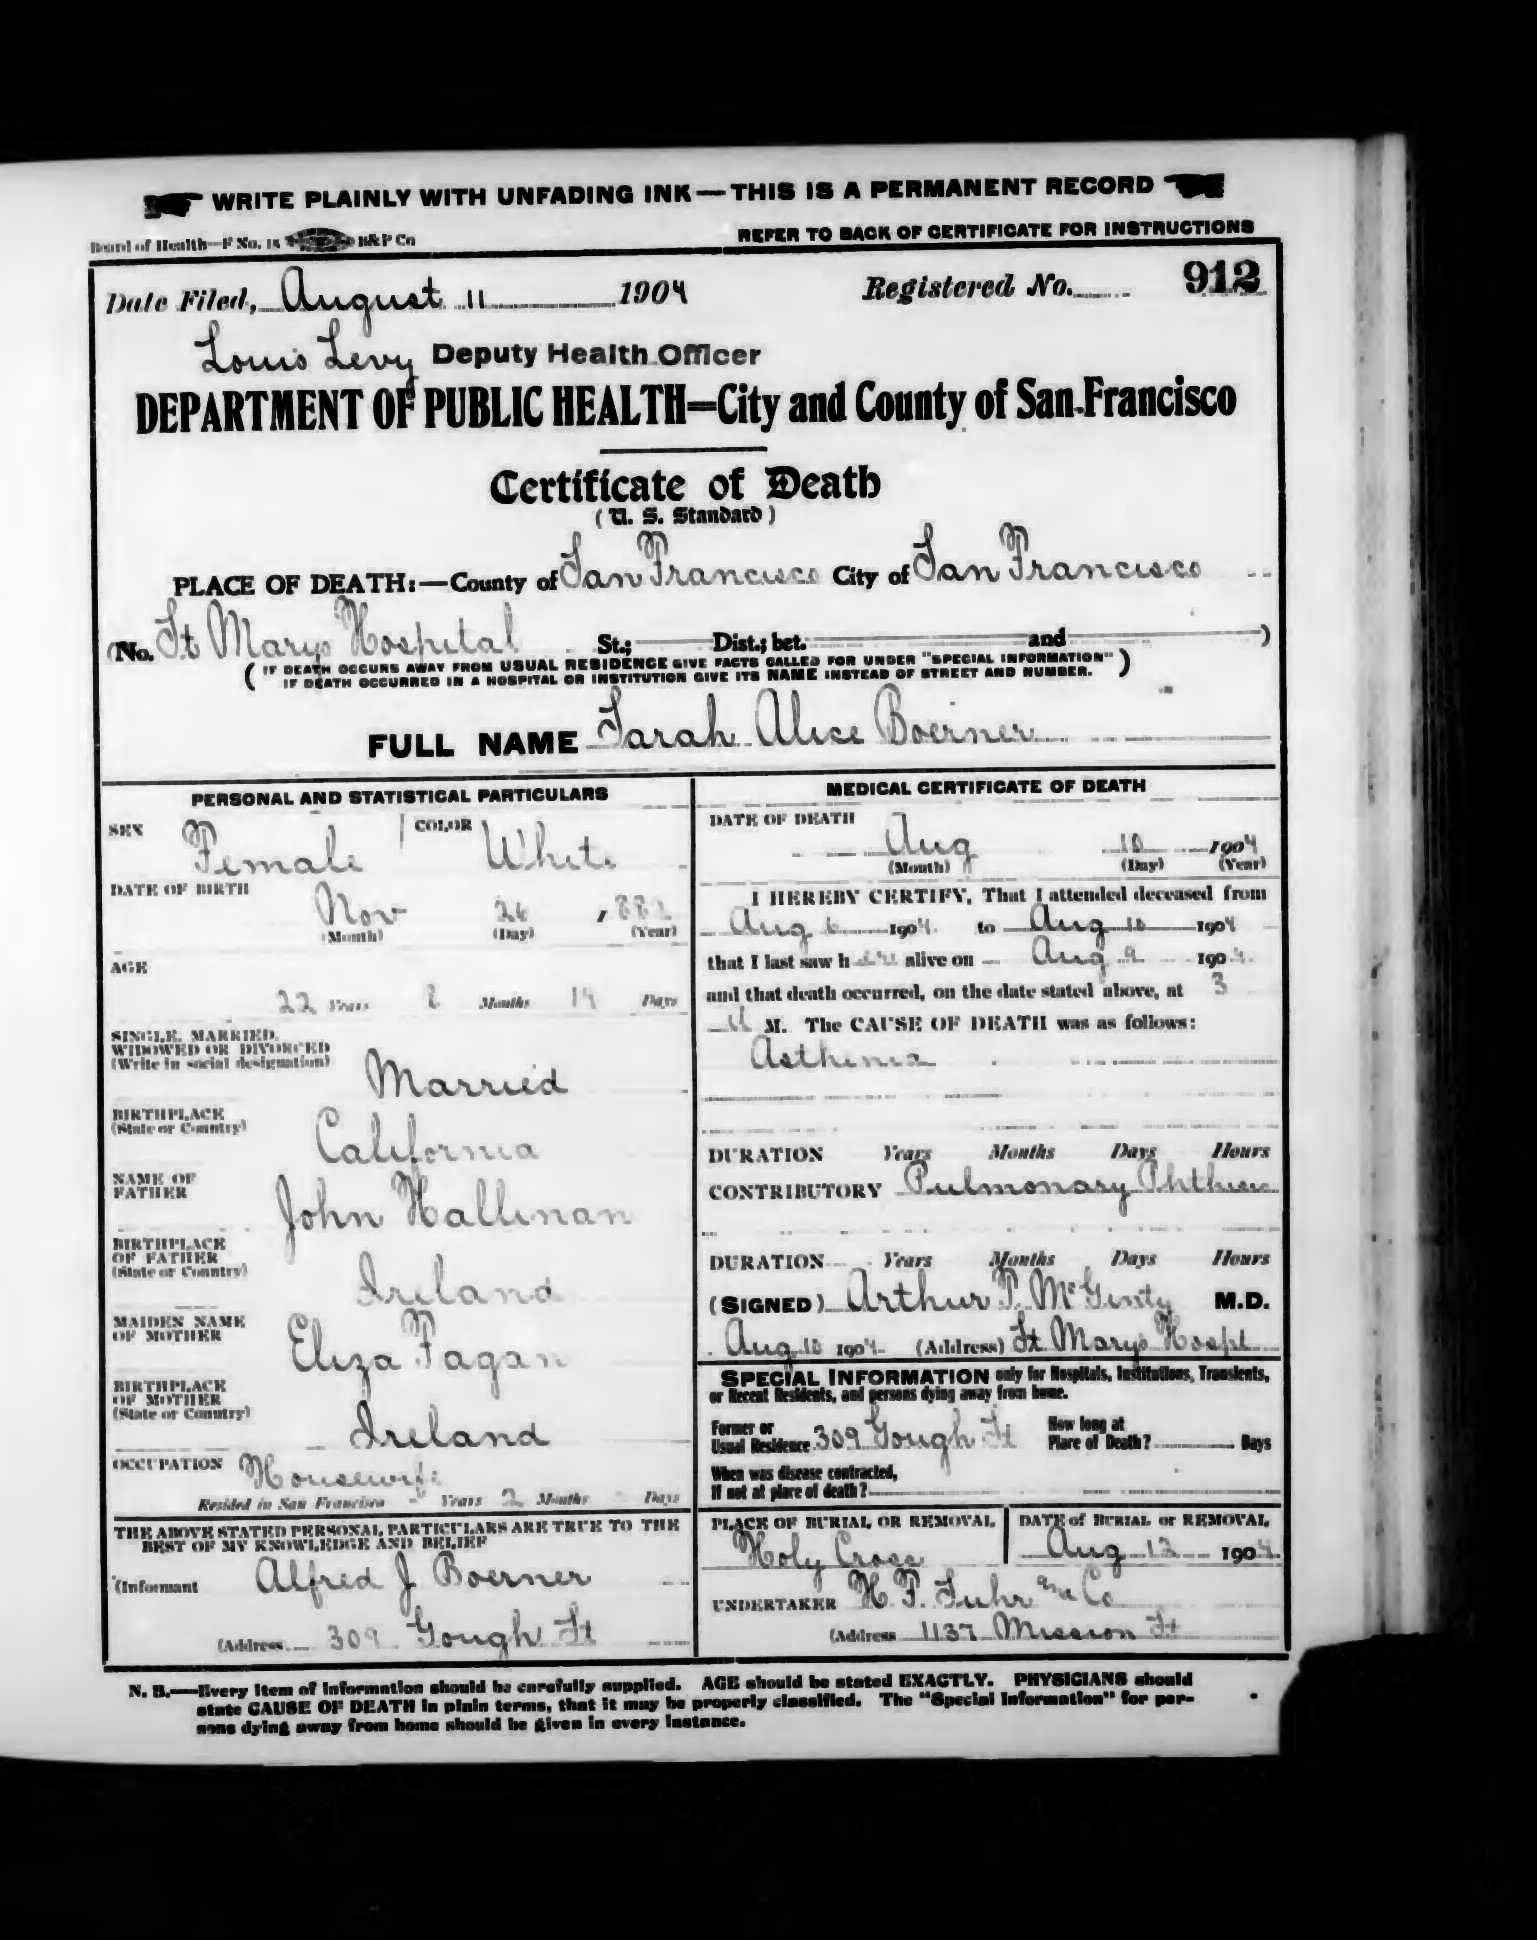 WRITE PLAINLY WITH UNFADING INK—THIS IS A PERMANENT RECORD
Board of Health—F No. 15 B&P Co
REFER TO BACK OF CERTIFICATE FOR INSTRUCTIONS
Date Filed, August 11 1904 Registered No. 912
Louis Levy Deputy Health Officer
DEPARTMENT OF PUBLIC HEALTH=City and County of San Francisco
Certificate of Death
(U. S. Standard)
PLACE OF DEATH:—County of San Francisco City of San Francisco
(No. St Marys Hospital St.; Dist.; bet. and )
(IF DEATH OCCURS AWAY FROM USUAL RESIDENCE GIVE FACTS CALLED FOR UNDER "SPECIAL INFORMATION"
IF DEATH OCCURRED IN A HOSPITAL OR INSTITUTION GIVE ITS NAME INSTEAD OF STREET AND NUMBER.)
FULL NAME Sarah Alice Boerner
PERSONAL AND STATISTICAL PARTICULARS
SEX Female COLOR White
DATE OF BIRTH
Nov 26 1882
(Month) (Day) (Year)
AGE
22 Years 8 Months 14 Days
SINGLE, MARRIED,
WIDOWED OR DIVORCED
(Write in social designation)
Married
BIRTHPLACE
(State or Country)
California
NAME OF
FATHER
John Hallinan
BIRTHPLACE
OF FATHER
(State or Country)
Ireland
MAIDEN NAME
OF MOTHER
Eliza Fagan
BIRTHPLACE
OF MOTHER
(State or Country)
Ireland
OCCUPATION Housewife
Resided in San Francisco Years 2 Months Days
THE ABOVE STATED PERSONAL PARTICULARS ARE TRUE TO THE
BEST OF MY KNOWLEDGE AND BELIEF
(Informant Alfred J Boerner
(Address 309 Gough St
MEDICAL CERTIFICATE OF DEATH
DATE OF DEATH
Aug 10 1904
(Month) (Day) (Year)
I HEREBY CERTIFY, That I attended deceased from
Aug 6 1904 to Aug 10 1904
that I last saw her alive on Aug 9 1904
and that death occurred, on the date stated above, at 3
M. The CAUSE OF DEATH was as follows:
Asthenia
DURATION Years Months Days Hours
CONTRIBUTORY Pulmonary Phthisis
DURATION Years Months Days Hours
(SIGNED) Arthur P. McGinty M.D.
Aug 10 1904 (Address) St Marys Hospt
SPECIAL INFORMATION only for Hospitals, Institutions, Transients,
or Recent Residents, and persons dying away from home.
Former or
Usual Residence 309 Gough St
How long at
Place of Death? Days
When was disease contracted,
If not at place of death?
PLACE OF BURIAL OR REMOVAL
Holy Cross
DATE of BURIAL or REMOVAL
Aug 12 1904
UNDERTAKER H. P. Suhr and Co
(Address 1137 Mission St
N. B.—Every item of information should be carefully supplied. AGE should be stated EXACTLY. PHYSICIANS should
state CAUSE OF DEATH in plain terms, that it may be properly classified. The "Special Information" for per-
sons dying away from home should be given in every instance.